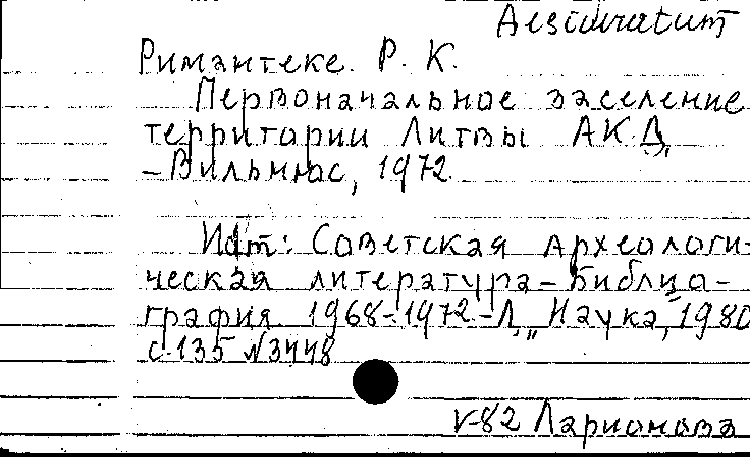 Desideratum
Римантеке. Р. К.
Первоначальное заселение
территории Литвы АКД,
- Вильнюс, 1972.
Ист: Советская археологи-
ческая литература - Библио-
графия 1968-1972 - Л. „Наука, 1980
с. 135 №3448
V-82 Ларионова